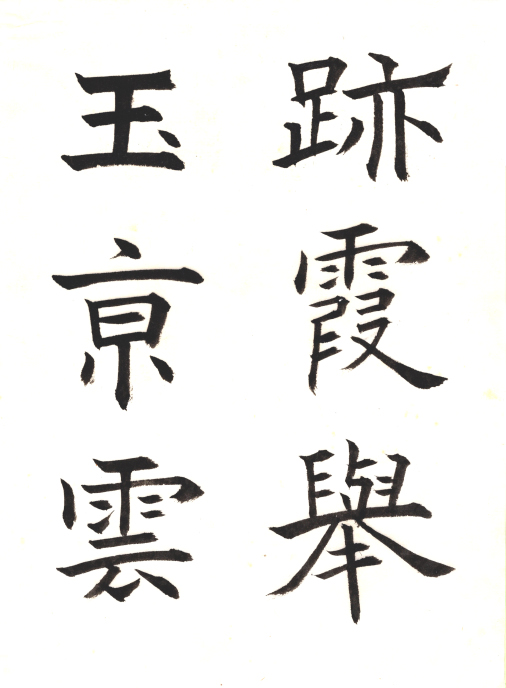 跡霞舉
玉亰雲